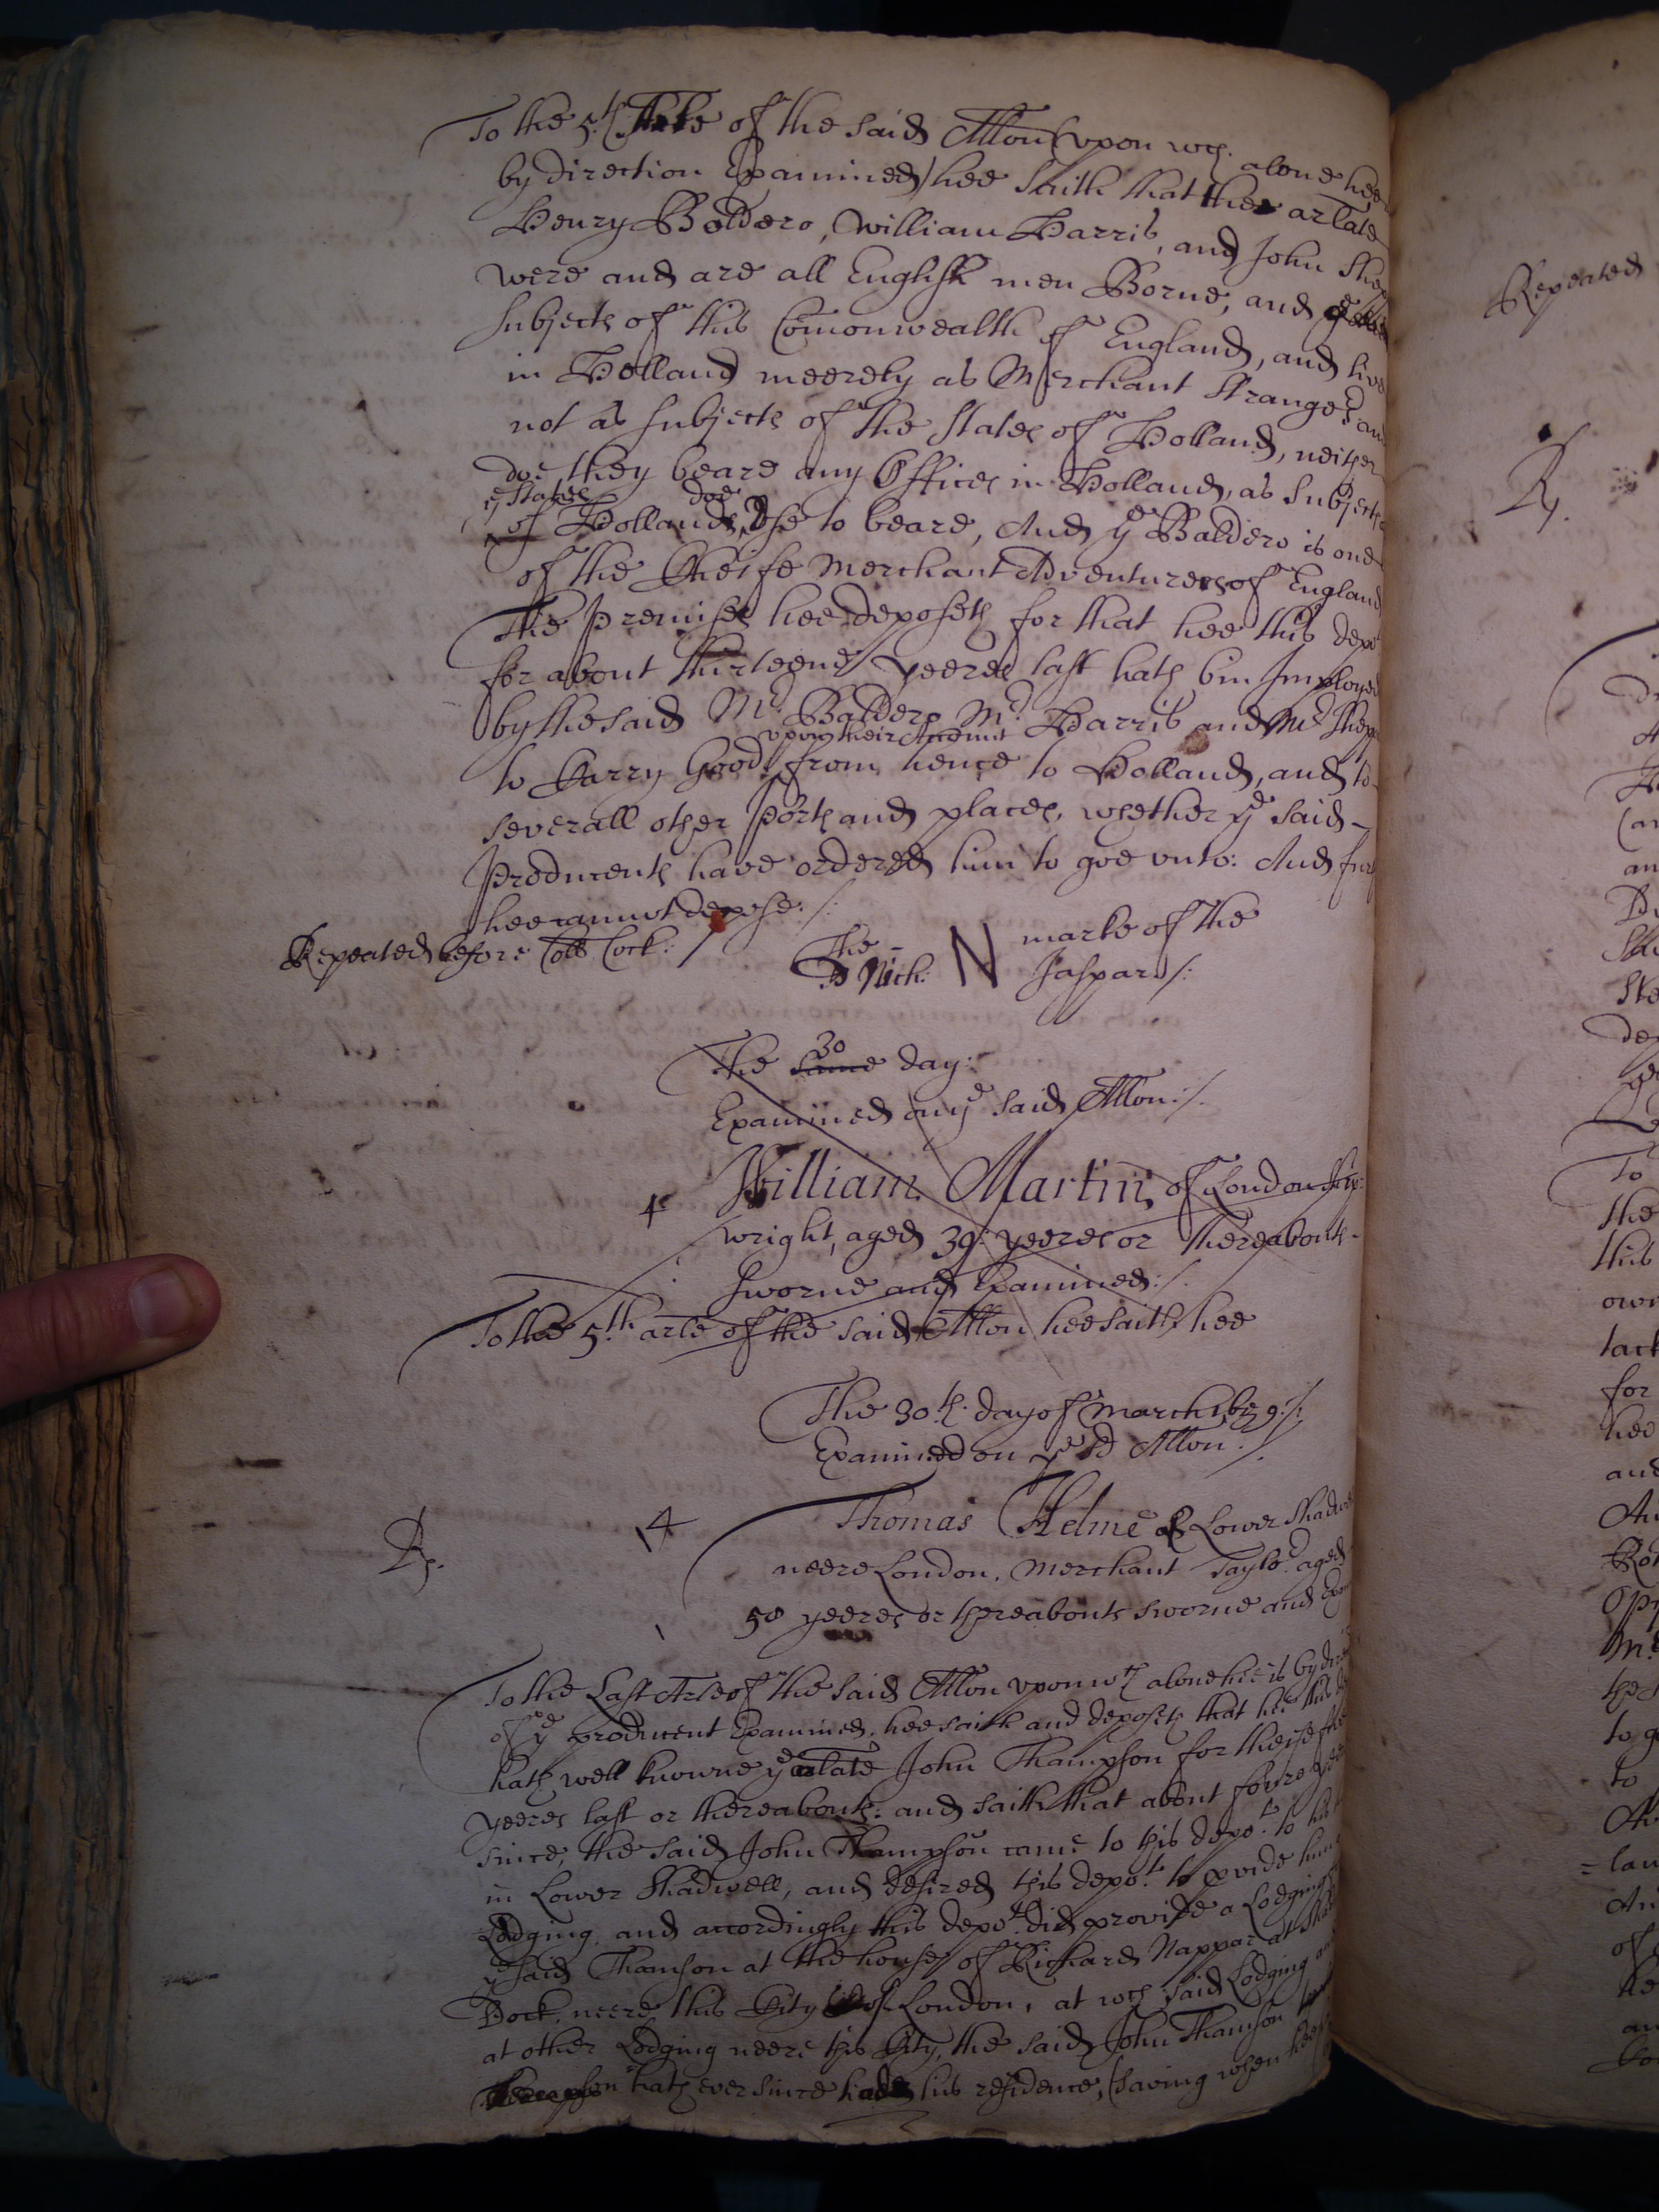 To the 5.th Arle of the said Allon (upon wch. alone hee
by direction Examined) hee saith that the arlate
Henry Baldero, William Harris, and John Shep
were and are all English men Borne, and
subjects of this Comonwealth of England, and live
in Holland meerely as Merchant Strangers and
not as subjects of the States of Holland, neither
doe they beare any Offices in Holland, as subjects
ye States
of Holland doe use to beare, And ye Baldero is one
of the Cheife Merchant Adventurers of England
The Premises hee deposeth for that hee this depot
for about thirteene yeeres last hath bin Imployed
by the said Mr. Baldero Mr. Harris and Mr Shep
upon their Accomt
to Carry Goods from hence to Holland, and to
severall other Ports and places, whether ye said
Producents have ordered him to goe unto: And fur
hee cannot depose:/:
Repeated before Coll Cock:/
The N marke of the
sd Nich: Jaspars/:
The same 30 day:
Examined on ye said Allon:/.
4 William Martin of London Ship:
wright, aged 39 yeeres or thereabouts
sworne and Examined:/.
To the 5.th arle of the said Allon hee saith hee
The 30th. day of March 1659:/:
Examined on ye sd Allon:/.
Rp. 4 Thomas Helme of Lower Shadwe
neere London, Merchant Taylor. aged
50 yeeres or thereabouts sworne and Exam
To the Last Arle of the said Allon upon wch alone hee is by dire
of ye producent Examined, hee saith and deposeth that hee this
hath well knowne ye arlate John Thampson for theise five
yeeres last or thereabouts: and saith that about foure yeer
since, the said John Thampson came to this depot. to his
in Lower Shadwell, and desired this depot. to pvide him
Lodging, and accordingly this depot. did provide a Lodging
ye said Thamson at the house of Richard Nappar at Shad
Dock neere this City of London, at wch said Lodging and
at other Lodging neere this City, the said John Thamson
hath ever since had his residence, (saving when hee
Repeated
Rp.